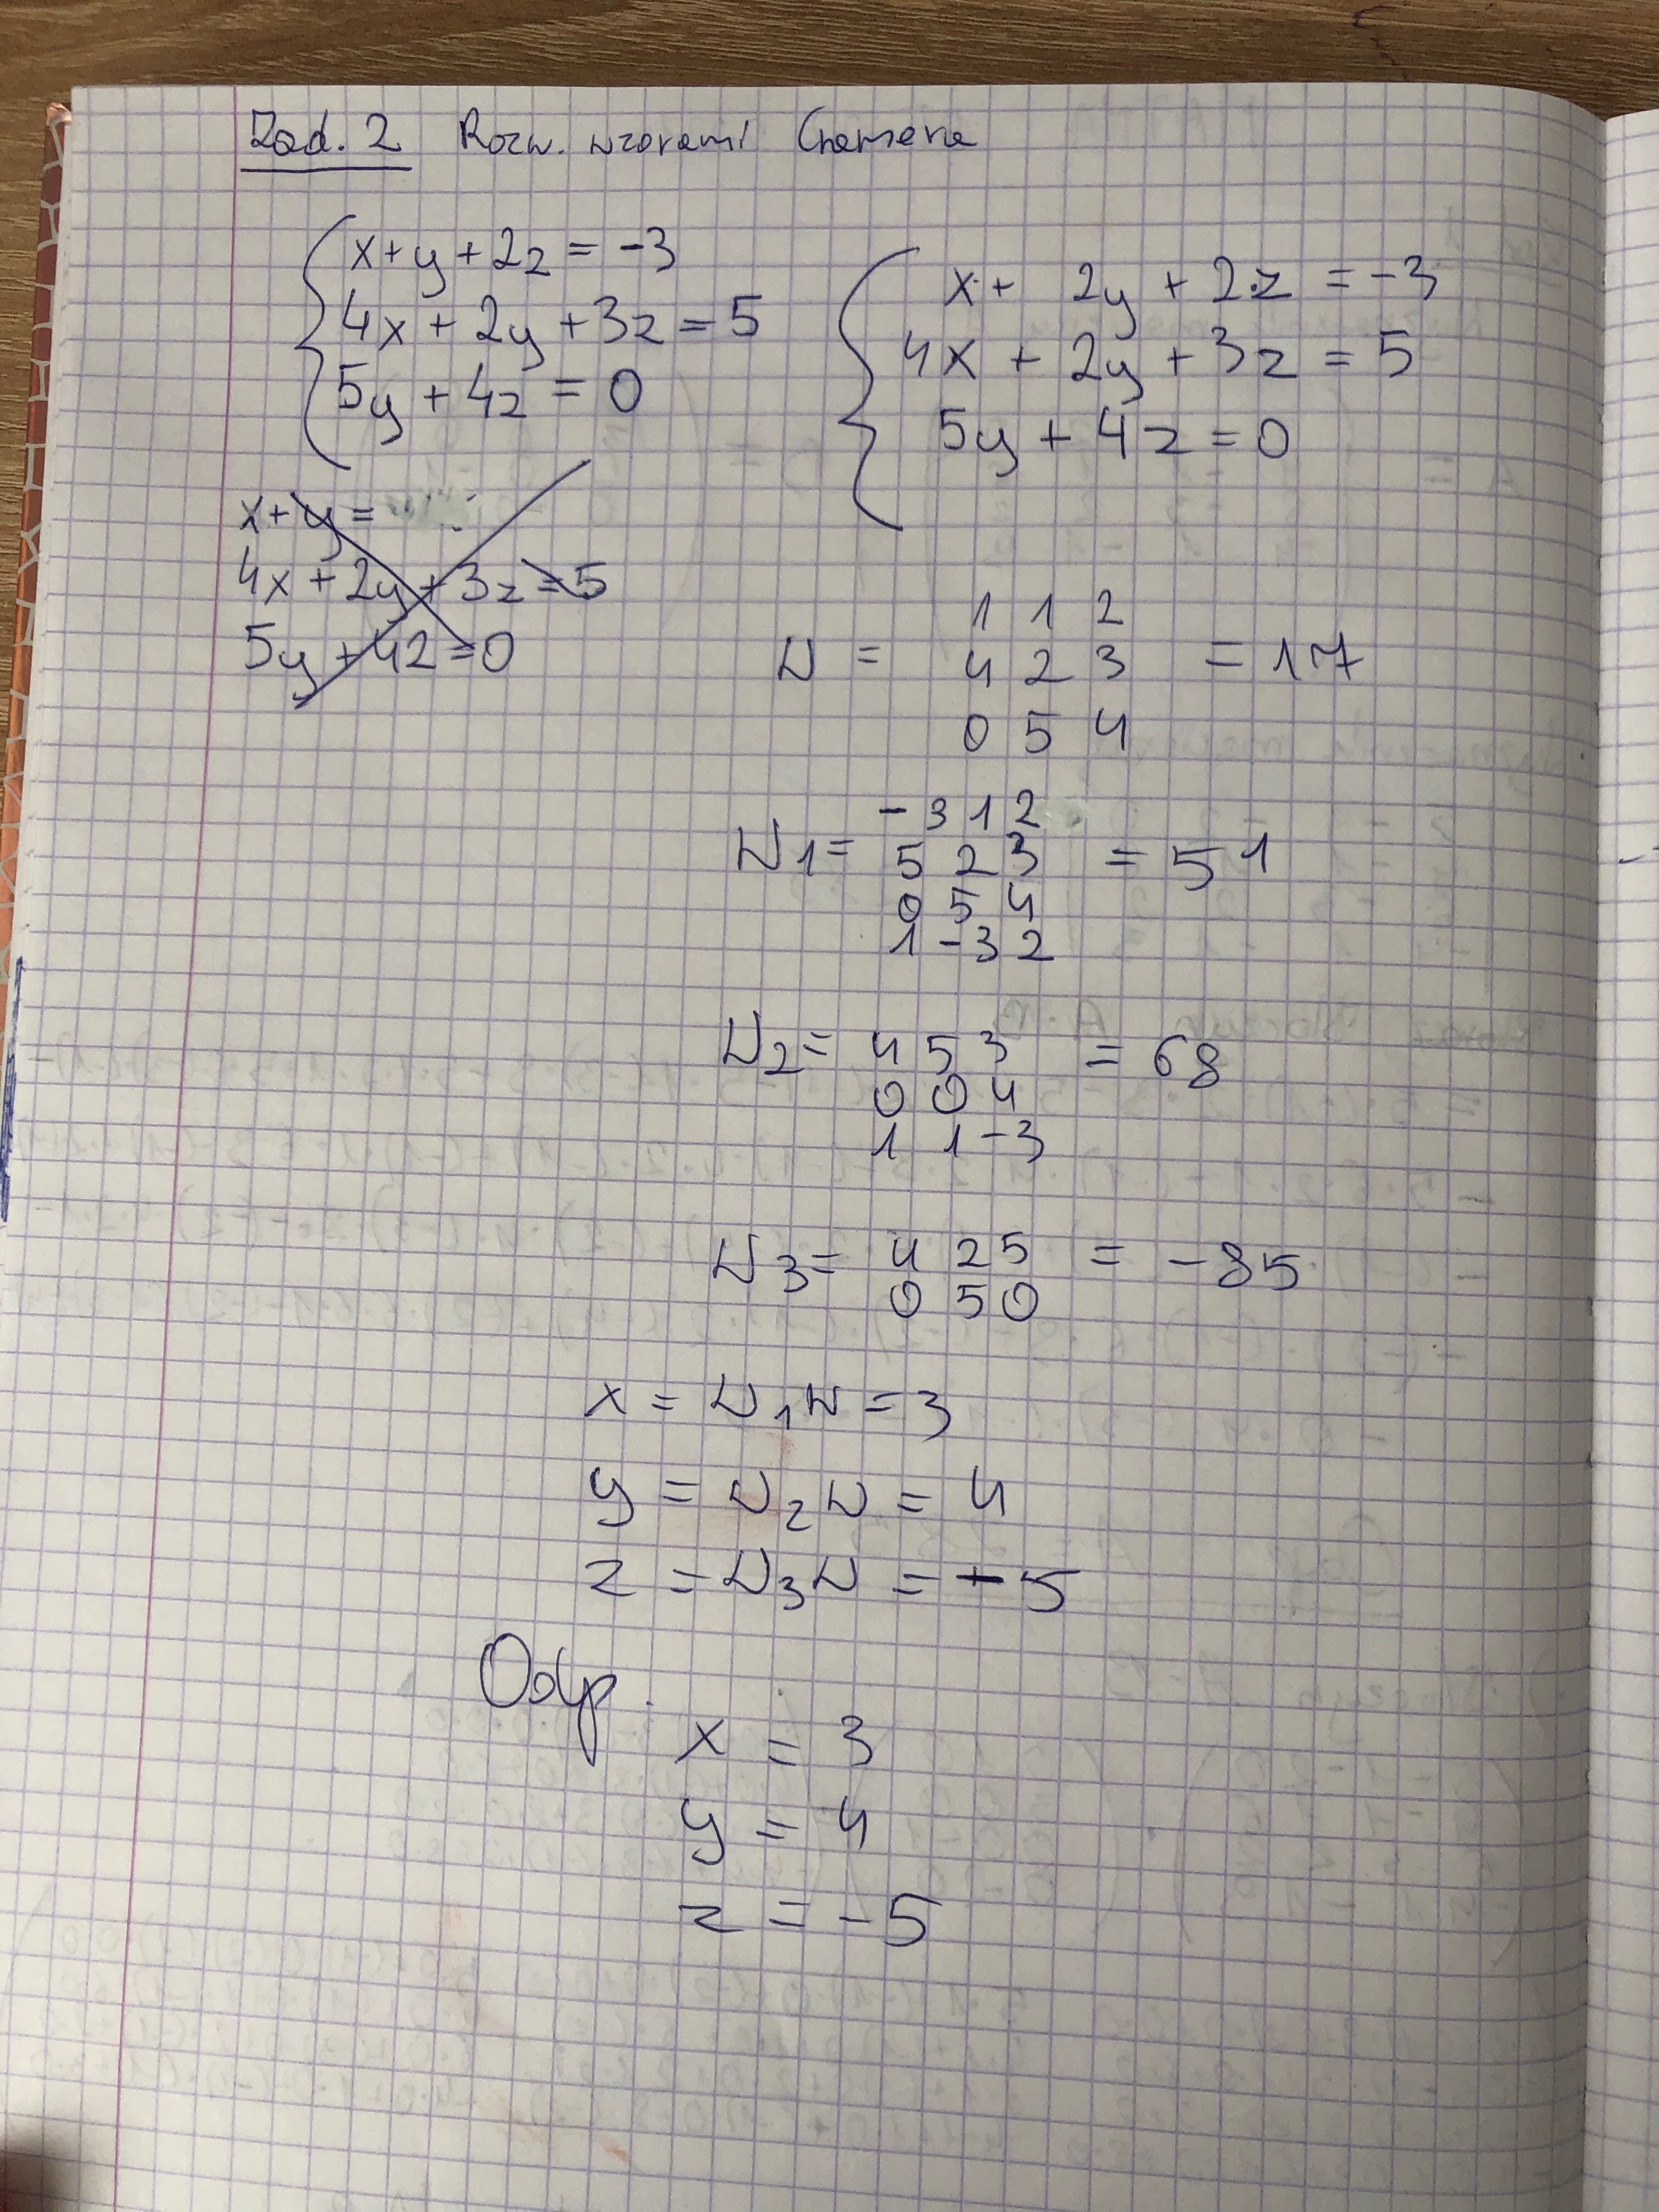 Zad. 2 Rozw. wzorami Cramera
x+y+2z = -3
4x+2y+3z=5
5y+4z=0
x+ 2y+2z = -3
4x+2y+3z=5
5y+4z=0
x+y=
4x+2y+3z=5
5y+4z=0
1 1 2
W = 4 2 3 = 17
0 5 4
-3 1 2
W1= 5 2 3 = 51
0 5 4
1 -3 2
W2= 4 5 3 = 68
0 0 4
1 1 -3
W3= 4 2 5 = -85
0 5 0
x = W1W = 3
y = W2W = 4
z = W3W = -5
Odp.
x = 3
y = 4
z = -5